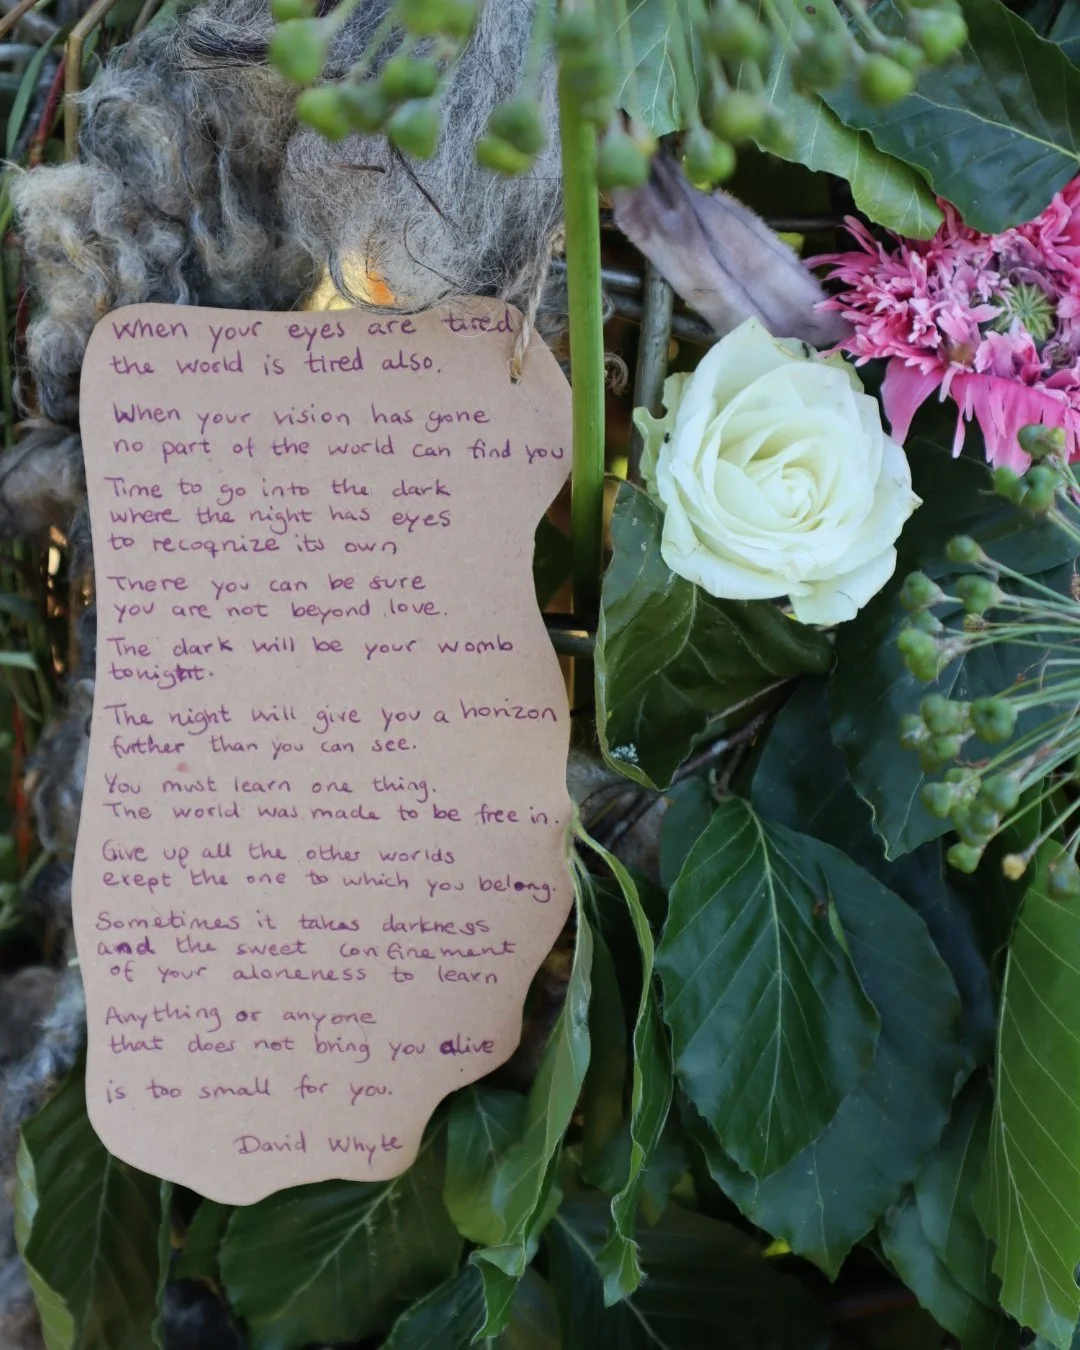 When your eyes are tired
the world is tired also.
When your vision has gone
no part of the world can find you
Time to go into the dark
where the night has eyes
to recognize its own
There you can be sure
you are not beyond love.
The dark will be your womb
tonight.
The night will give you a horizon
further than you can see.
You must learn one thing.
The world was made to be free in.
Give up all the other worlds
exept the one to which you belong.
Sometimes it takes darkness
and the sweet confinement
of your aloneness to learn
Anything or anyone
that does not bring you alive
is too small for you.
David Whyte